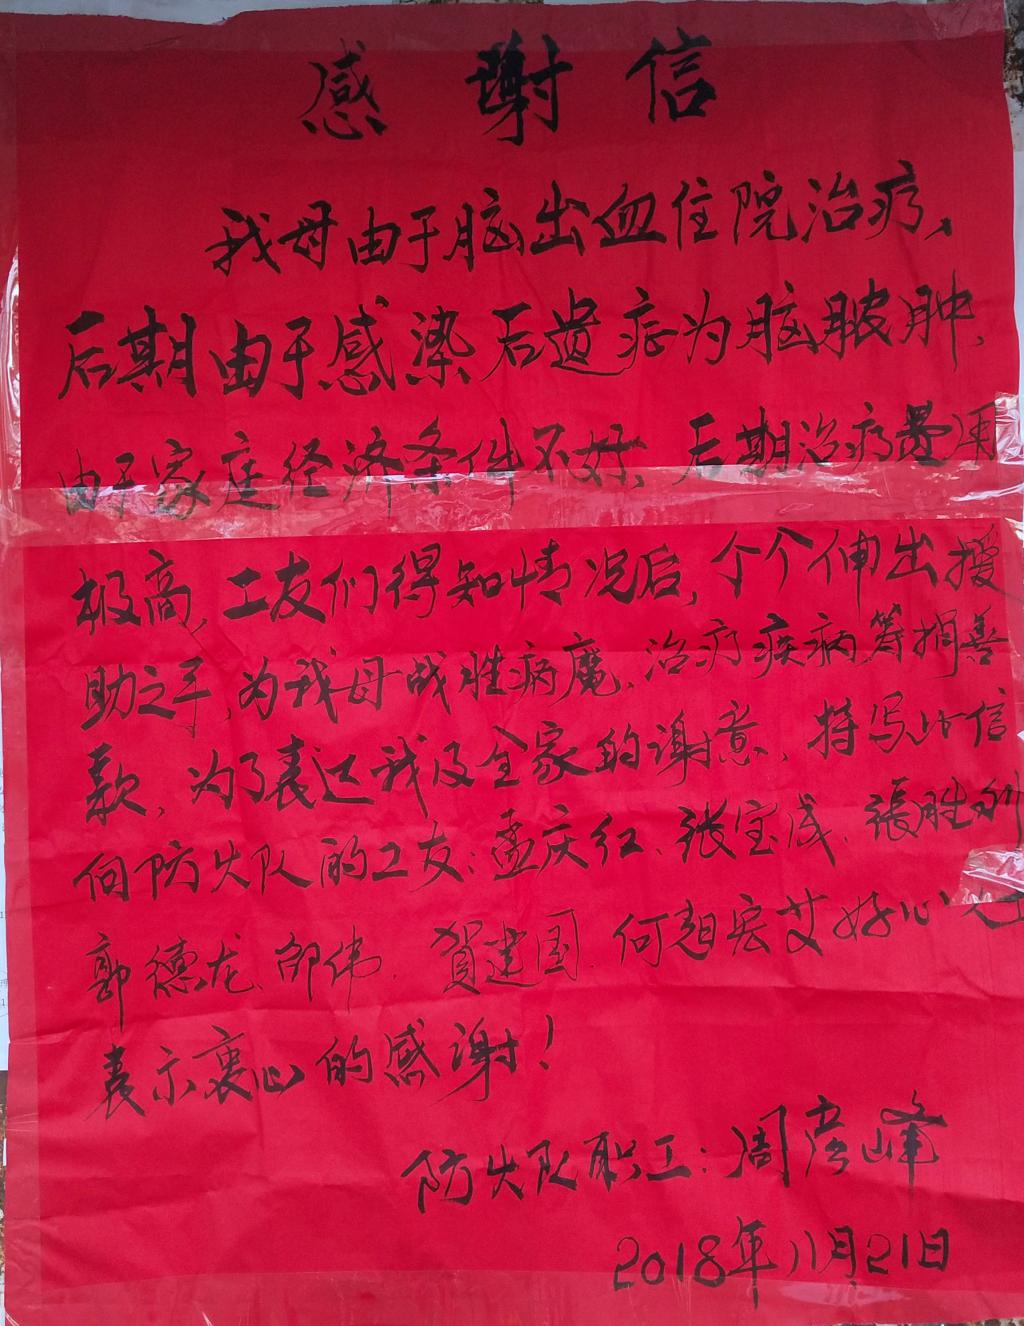 感谢信
我母由于脑出血住院治疗,
后期由于感染后遗症为脑脓肿,
由于家庭经济条件不好,后期治疗费用
极高,工友们得知情况后,个个伸出援
助之手,为我母战胜病魔,治疗疾病,筹捐善
款,为了表达我及全家的谢意,特写此信
向防火队的工友:孟庆红、张宝成、張胜利
郭德龙、邵伟、贺建国、何超宏艾好心人
表示衷心的感谢!
防火队职工:周彦峰
2018年11月21日